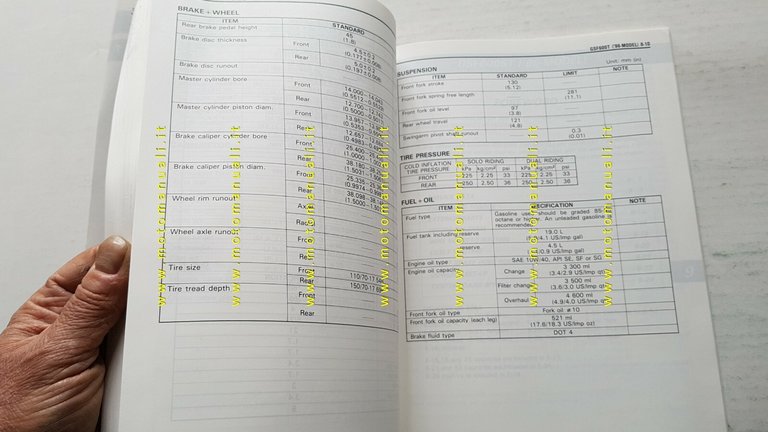 BRAKE + WHEEL
ITEM STANDARD
Rear brake pedal height 45
(1.8)
Brake disc thickness Front 4.5 ± 0.2
(0.177 ± 0.008)
Rear 5.0 ± 0.2
(0.197 ± 0.008)
Brake disc runout
Master cylinder bore Front 14.000
(0.5512
Rear 12.700
(0.5000
Master cylinder piston diam. Front 13.957
Rear 12.657
(0.4983
Brake caliper cylinder bore Front 25.400
(1.0000
38.180
(1.5031
Brake caliper piston diam. Front 25.335
(0.9974
38.098
(1.5000
Wheel rim runout
Wheel axle runout Front
Rear
Tire size Front 110/70-17
Rear 150/70-17
Tire tread depth Front
Rear
GSF600T ('96-MODEL) 8-10
SUSPENSION
Unit: mm (in)
ITEM STANDARD LIMIT NOTE
Front fork stroke 130
(5.12)
Front fork spring free length 281
(11.1)
Front fork oil level 97
(3.8)
Rear wheel travel 121
(4.8)
Swingarm pivot shaft runout 0.3
(0.01)
TIRE PRESSURE
COLD INFLATION
TIRE PRESSURE SOLO RIDING DUAL RIDING
kPa kg/cm² psi kPa kg/cm² psi
FRONT 225 2.25 33 225 2.25 33
REAR 250 2.50 36 250 2.50 36
FUEL + OIL
ITEM SPECIFICATION NOTE
Fuel type Gasoline used should be graded
octane or higher. An unleaded gasoline
recommended.
Fuel tank including reserve 19.0 L
US/Imp gal)
reserve 4.5 L
US/Imp gal)
Engine oil type SAE 10W/40, API SE, SF or SG
Engine oil capacity Change 3 300 ml
(3.4/2.9 US/Imp qt)
Filter change 3 500 ml
(3.6/3.0 US/Imp qt)
Overhaul 4 600 ml
(4.9/4.0 US/Imp qt)
Front fork oil type Fork oil #10
Front fork oil capacity (each leg) 521 ml
(17.6/18.3 US/Imp oz)
Brake fluid type DOT 4
www.motomanuali.it
www.motomanuali.it
www.motomanuali.it
www.motomanuali.it
www.motomanuali.it
www.motomanuali.it
www.motomanuali.it